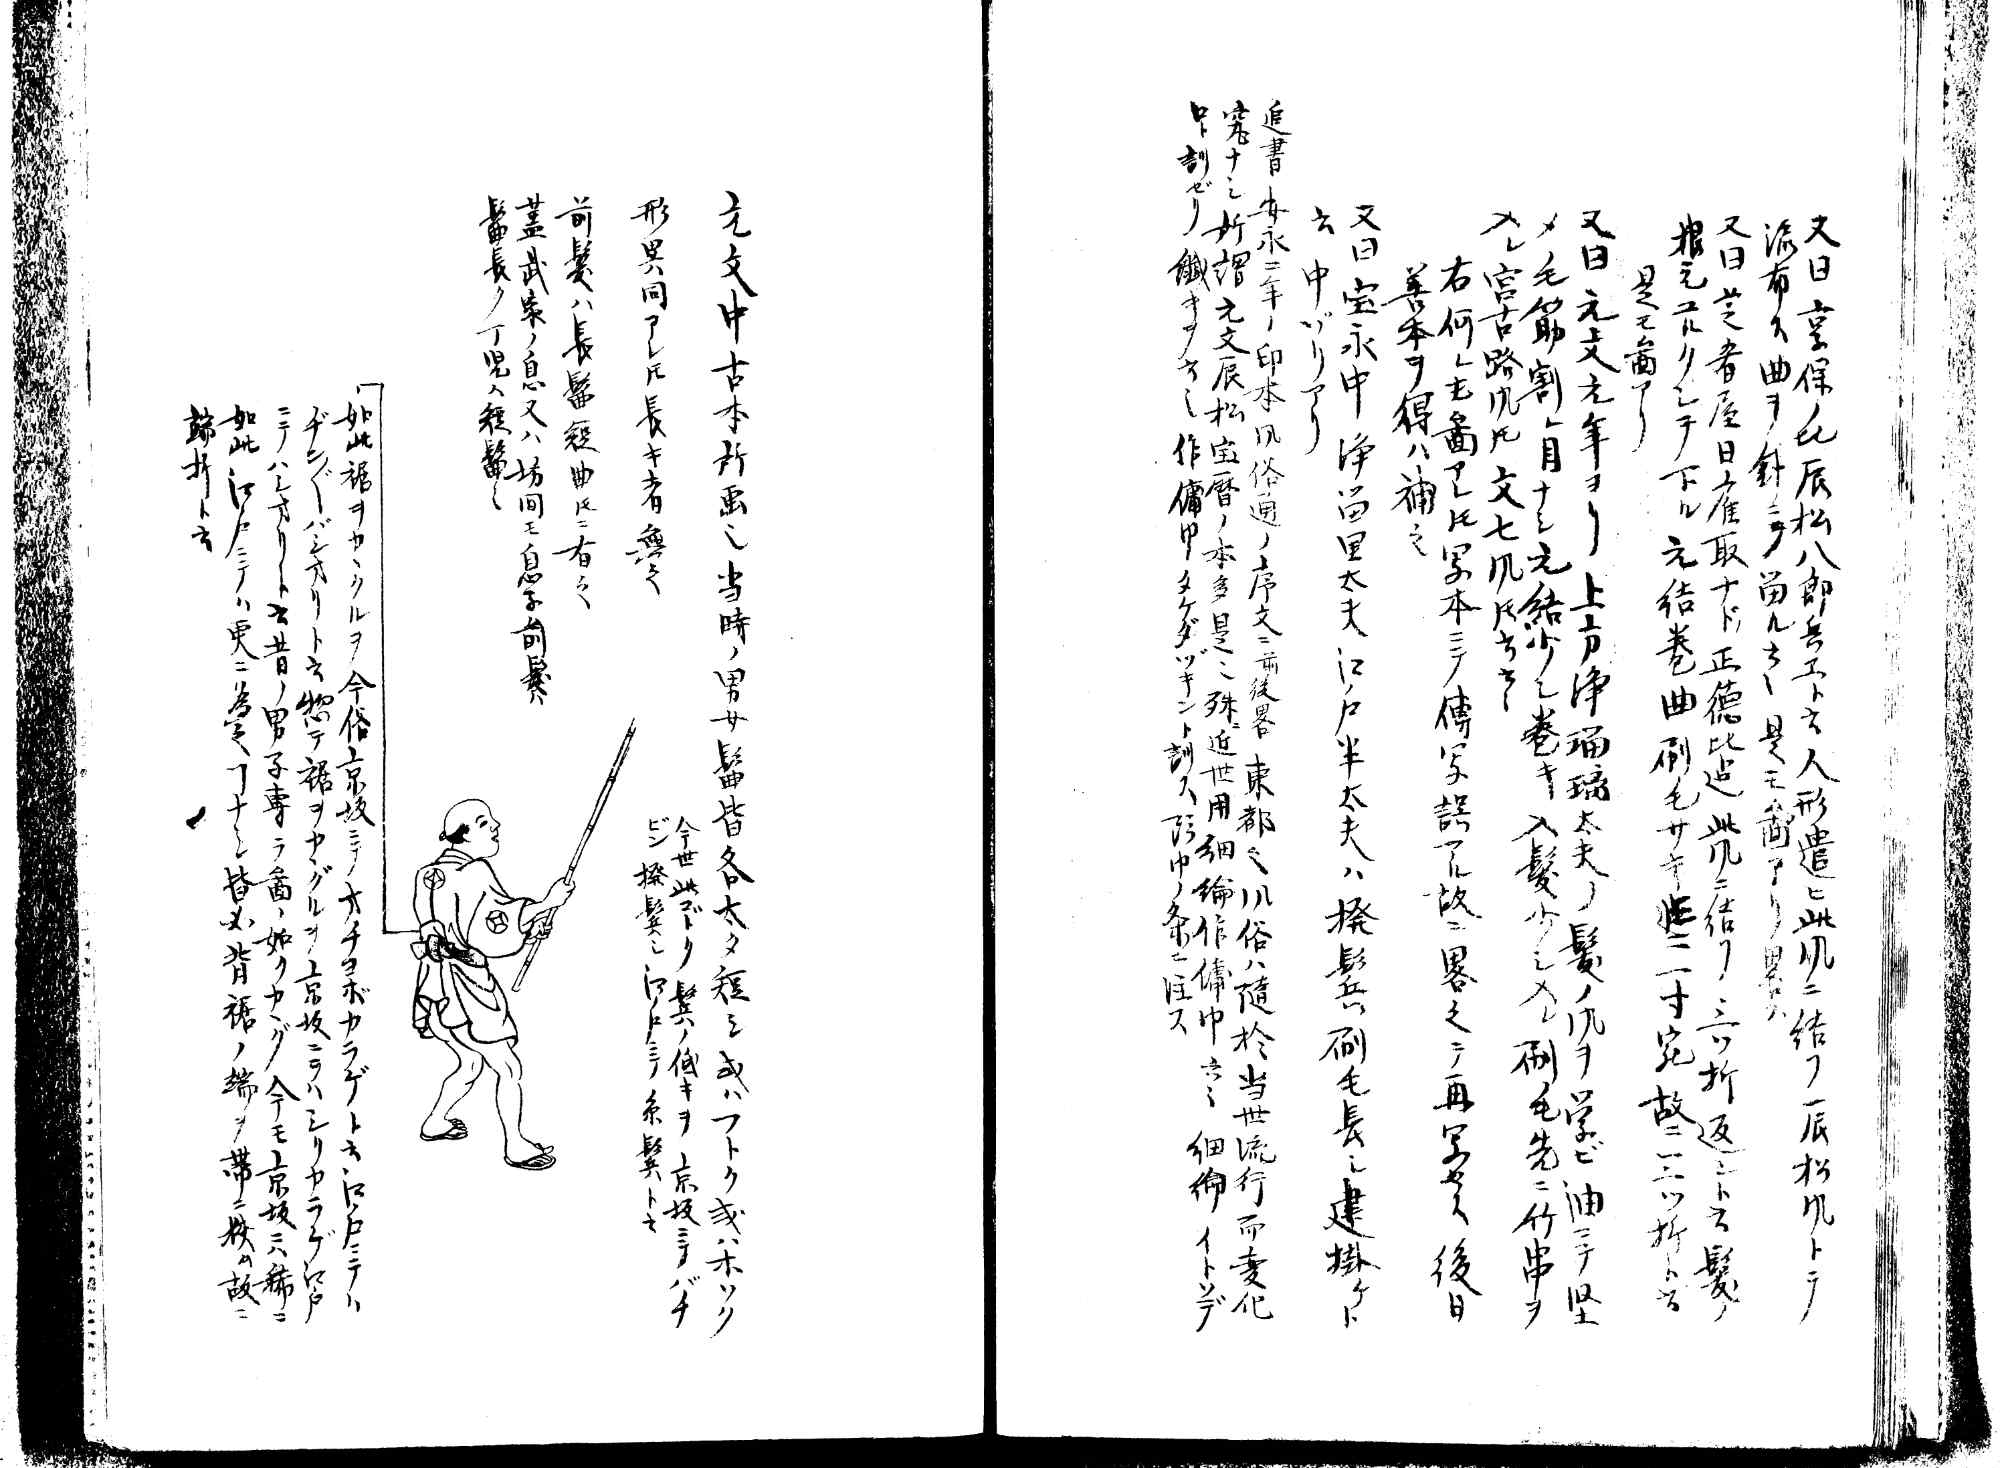 又曰享保ノ比辰松八郎兵エト云人形遣ヒ此風ニ結フ辰松風トテ
流布ス曲ヲ針ニテ留ル也是モ畵アリ畧ス
又曰芝者屋日雇取ナド正徳比迄此風ニ結フ三ツ折返シト云髪ノ
根元ユルクシテ下ル元結巻曲刷毛サキ 二寸宛故ニ三ツ折ト云
是モ畵アリ
又曰元文元年ヨリ上方浄瑠璃太夫ノ髪ノ風ヲ学ビ油ニテ堅
メノ毛筋割目ナシ元結少シ巻キ入髪少シ入レ刷毛先ニ竹串ヲ
入レ宮古路風トモ文七風トモ云也
右何レモ畵アレトモ写本ニテ傳写誤アル故ニ畧之テ再写セズ後日
善本ヲ得ハ補之
又曰宝永中浄留里太夫江戸半太夫ハ撥鬂刷毛長シ建掛ケト
云中ゾリアリ
追書安永二年ノ印本風俗通ノ序文ニ前後畧東都之風俗ハ隨於当世流行而変化
究ナシ所謂元文辰松宝暦ノ本多是也殊ニ近世用細綸作傭巾云々細綸イトソデ
ロト訓ゼリ鐡キヲ云也作傭巾タケダヅキント訓ス頭巾ノ条ニ注ス
元文中古本所画也当時ノ男女髷皆各太タ短シ或ハフトク或ハホソク
形異同アレトモ長キ者無之
今世此ゴトク鬂ノ低キヲ京坂ニテバチ
ビン撥鬂也江戸ニテ糸鬂ト云
前髪ハ長髷短曲トモニ有之
蓋武家ノ息又ハ坊間モ息子前髪ハ
髷長ク丁児ハ短髷也
如此裾ヲカヽクルヲ今俗京坂ニテノオチヨボカラゲト云江戸ニテハ
ヂンヂンバシオリト云惣テ裾ヲカヽグルヲ京坂ニテハシリカラゲ江戸
ニテハシオリト云昔ノ男子専ラ畵ノ如クカヽグ今モ京坂ニハ稀ニ
如此江戸ニテハ更ニ為之丁ナシ皆必背裾ノ端ヲ帯ニ挾ム故ニ
端折ト云